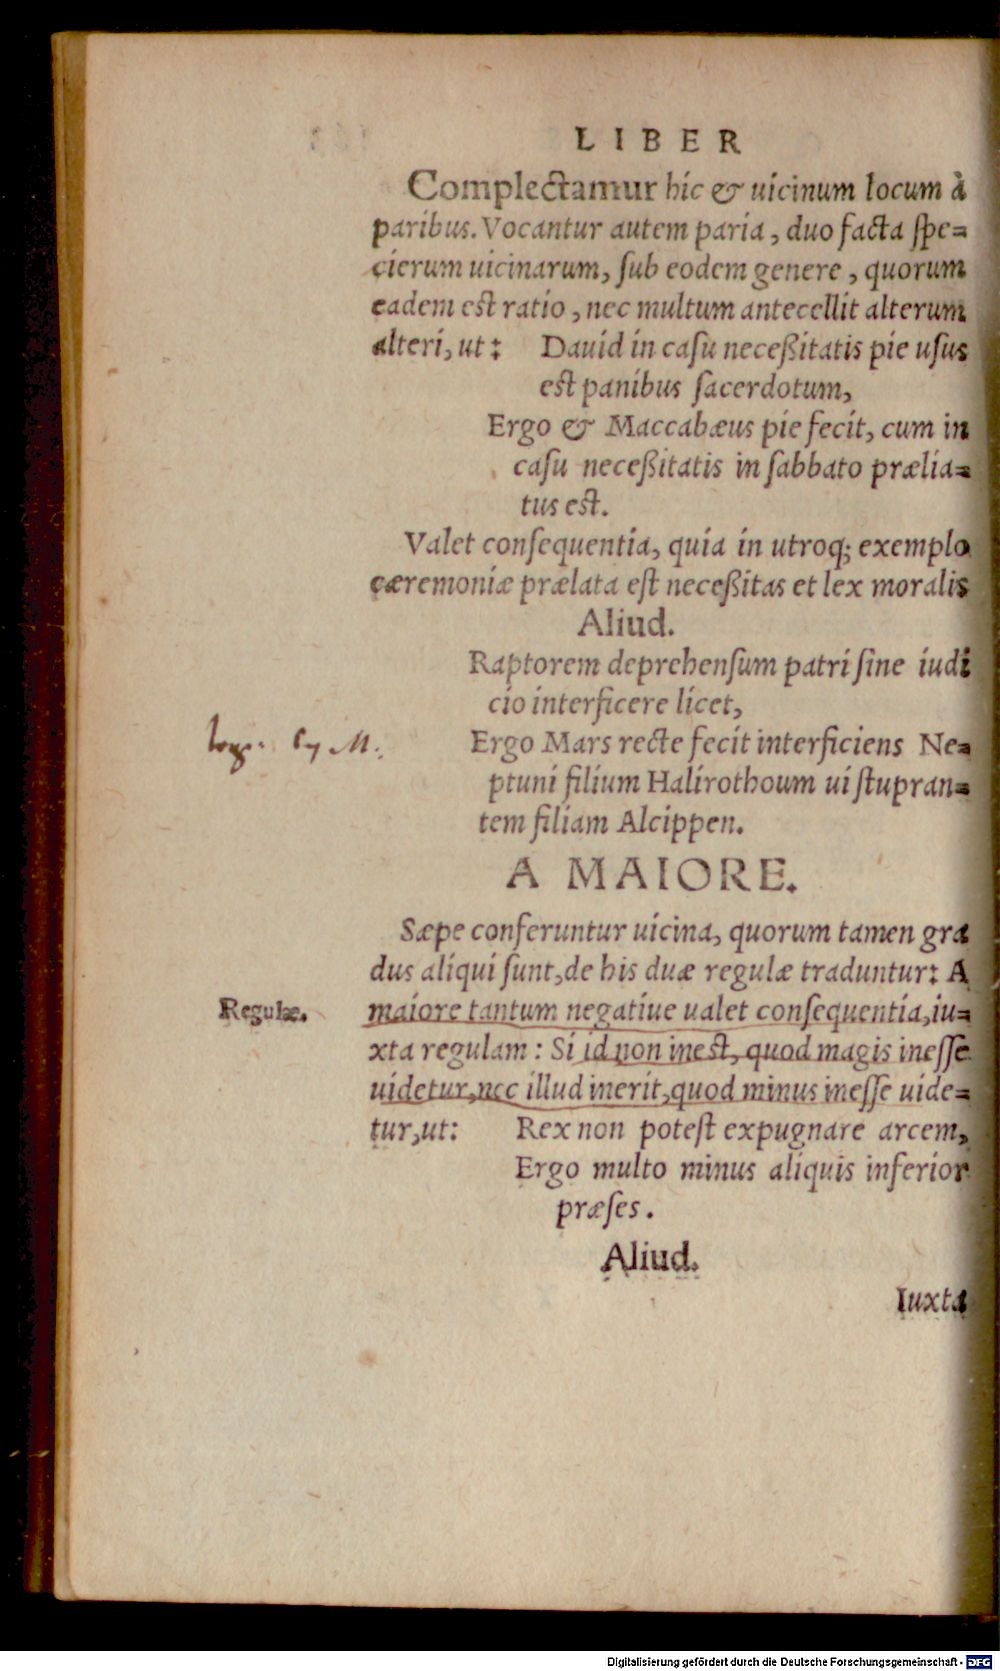 LIBER
Complectamur hic & uicinum locum à
paribus. Vocantur autem paria, duo facta ſpe=
cierum uicinarum, ſub eodem genere, quorum
eadem est ratio, nec multum antecellit alterum
alteri, ut: Dauid in caſu neceßitatis pie uſus
est panibus ſacerdotum,
Ergo & Maccabæus pie fecit, cum in
caſu neceßitatis in ſabbato prælia=
tus est.
Valet conſequentia, quia in utroq; exemplo
cæremoniæ prælata eſt neceßitas et lex moralis
Aliud.
Raptorem deprehenſum patri ſine iudi
cio interficere licet,
Ergo Mars recte fecit interficiens Ne=
ptuni filium Halirothoum ui ſtupran=
tem filiam Alcippen.
A MAIORE.
Sæpe conferuntur uicina, quorum tamen gra
dus aliqui ſunt, de his duæ regulæ traduntur: A
Regulæ.
maiore tantum negatiue ualet conſequentia, iu=
xta regulam: Si id non inest, quod magis ineſſe
uidetur, nec illud inerit, quod minus ineſſe uide=
tur, ut: Rex non poteſt expugnare arcem,
Ergo multo minus aliquis inferior
præſes.
Aliud.
Iuxta
Digitalisierung gefördert durch die Deutsche Forschungsgemeinschaft - DFG